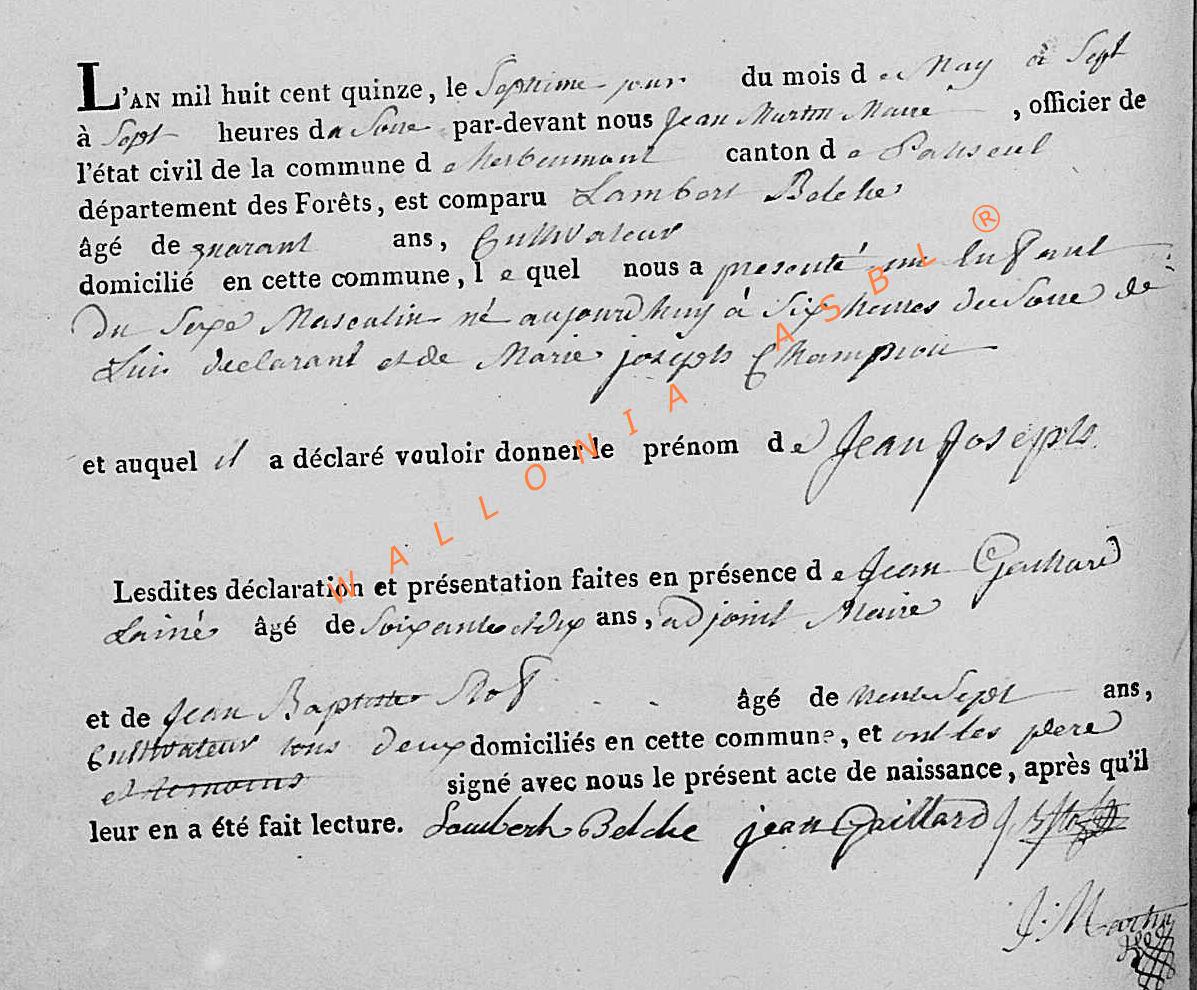 L'AN mil huit cent quinze, le Septieme jour du mois de May à Sept
à Sept heures du Soire par-devant nous Jean Martin Maire, officier de
l'état civil de la commune de herbeumont canton de Paliseul
département des Forêts, est comparu Lambert Belche
âgé de quarant ans, Cultivateur
domicilié en cette commune, le quel nous a presenté un Enfant
Du Sexe Masculin né aujourdhuy à Six heures du Soire de
Luis declarant et de Marie joseph Champion
et auquel il a déclaré vouloir donner le prénom de Jean Joseph
Lesdites déclaration et présentation faites en présence de Jean Gaillard
Lainé âgé de Soixante et dix ans, adjoint Maire
et de Jean Baptiste Stof âgé de trente Sept ans,
Cultivateur tous deux domiciliés en cette commune, et ont les pere
et temoins signé avec nous le présent acte de naissance, après qu'il
leur en a été fait lecture. Lambert Belche jean Gaillard
J. Martin
WALLONIA ASBL ®